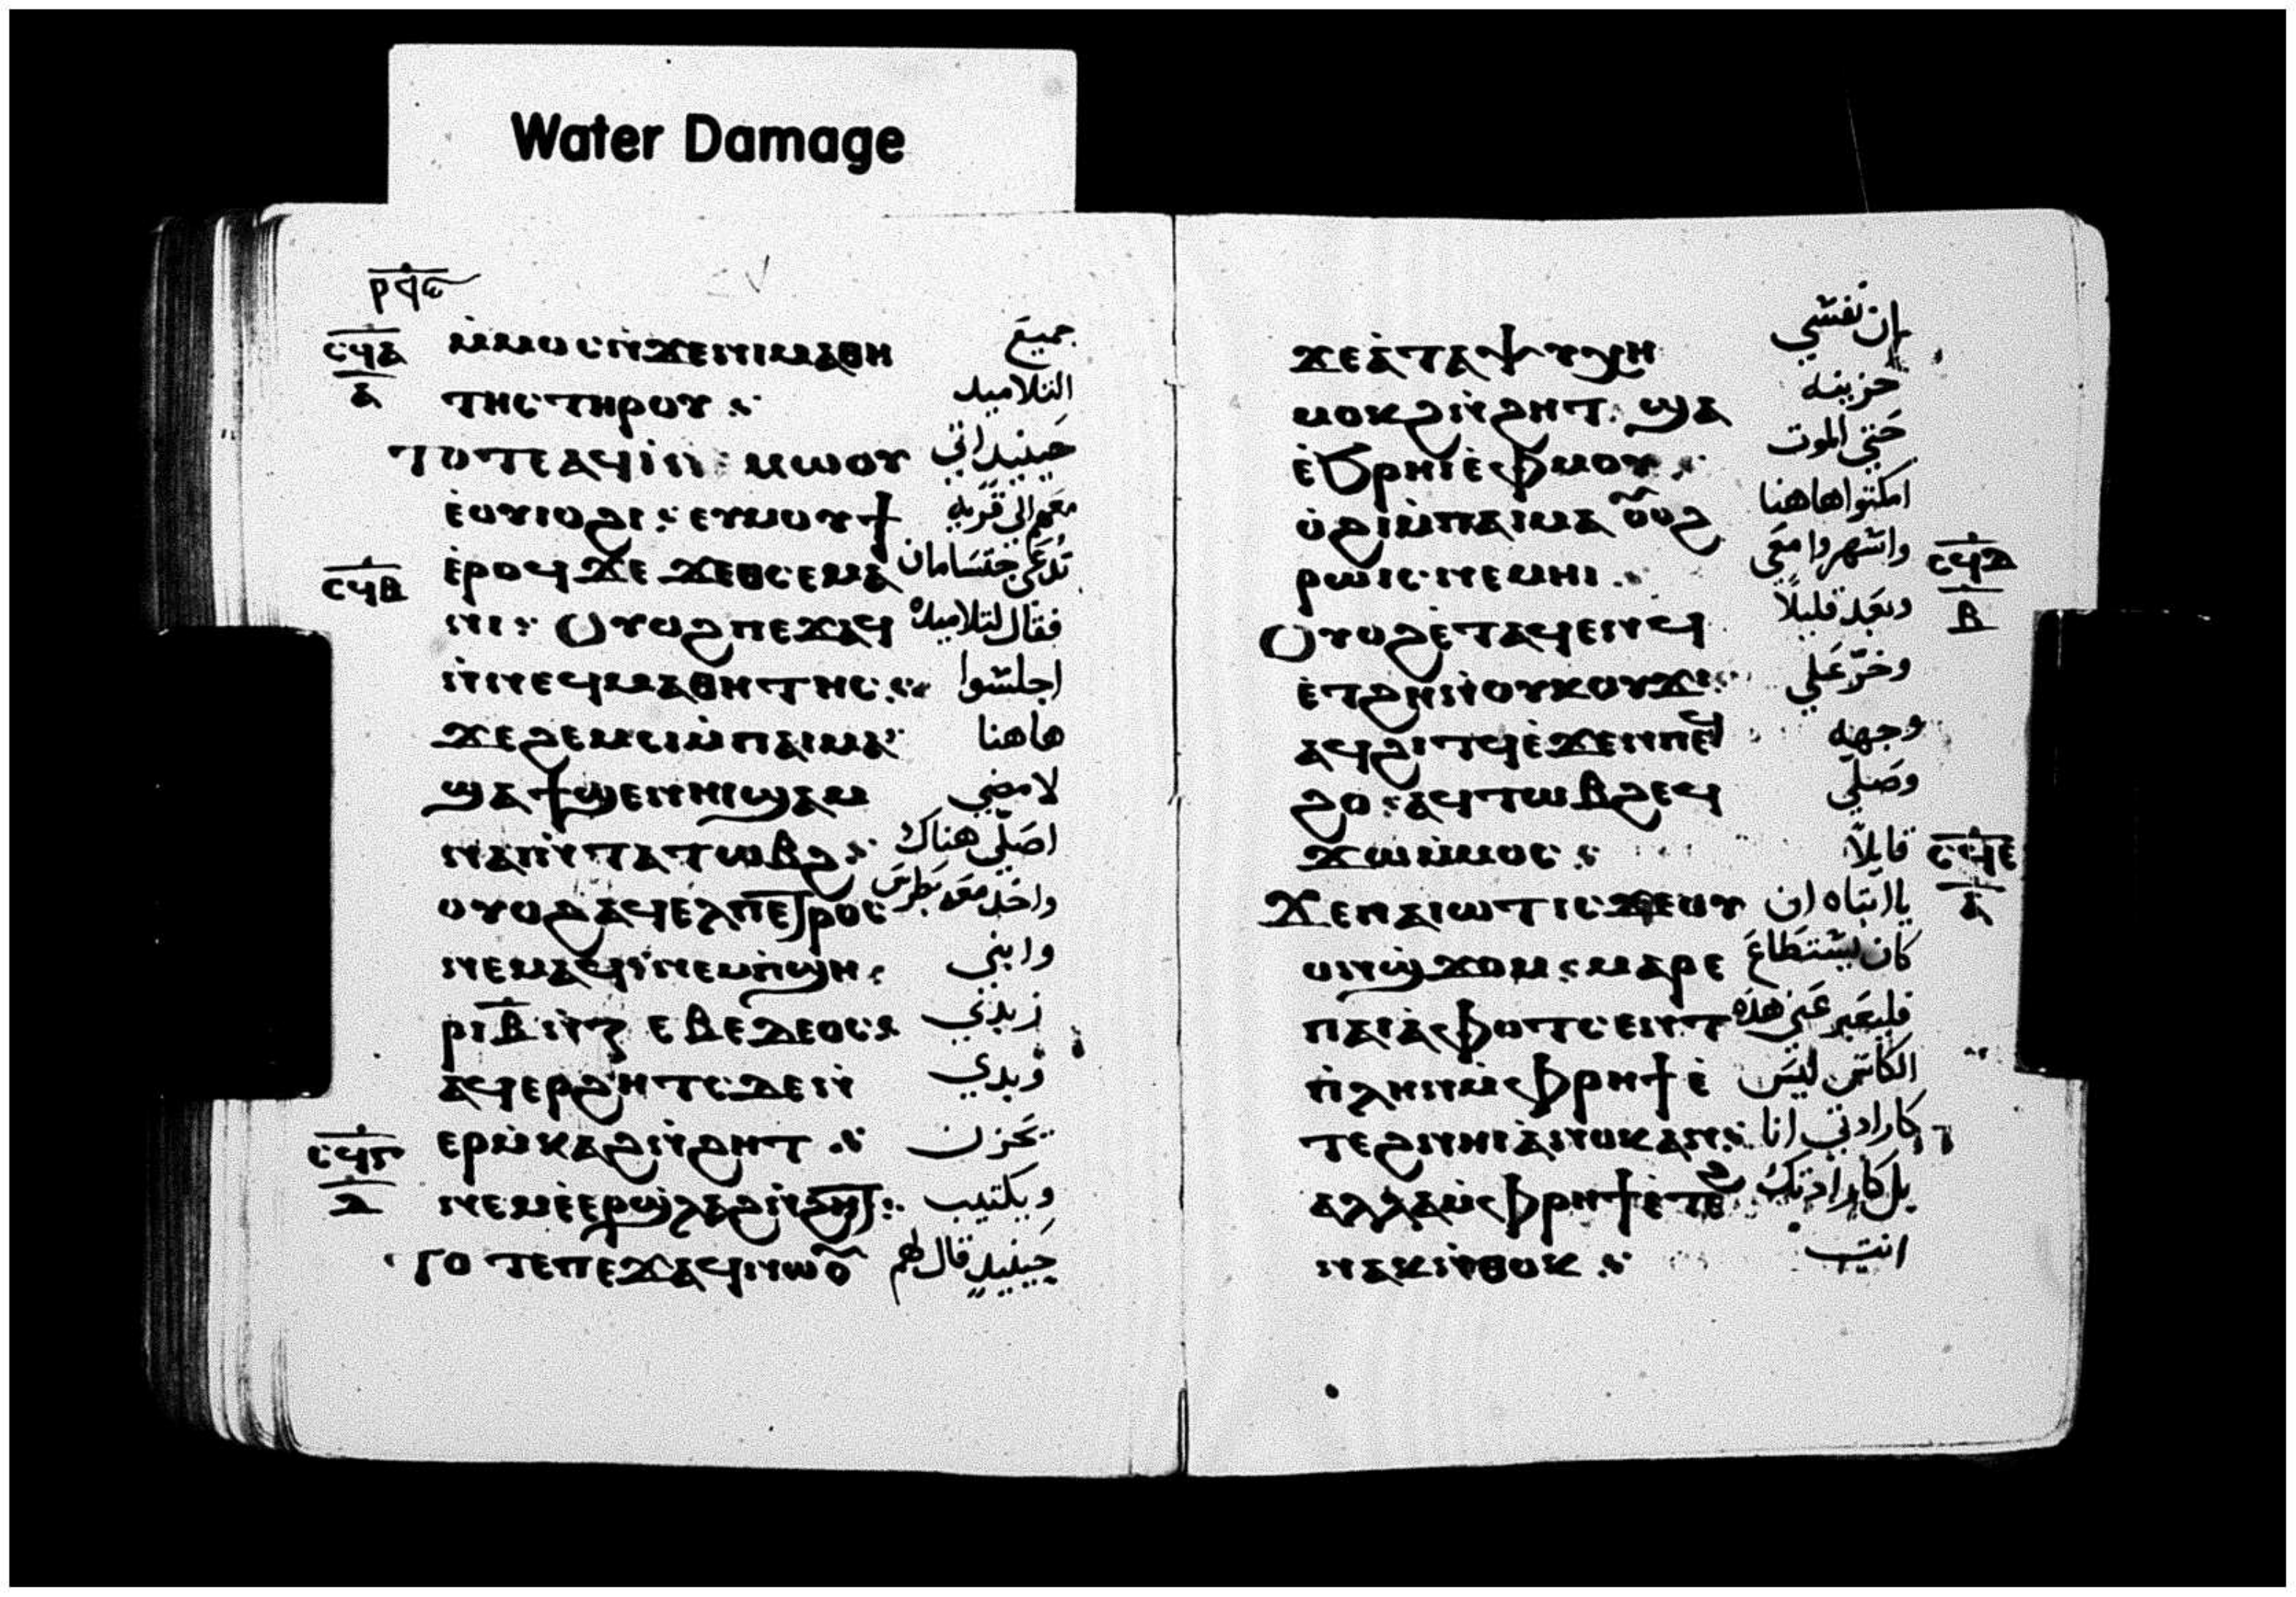 Water Damage
ⲣϥⲋ
ⲥϥⲁ ⲙ̇ⲙⲟⲥⲛ̇ϫⲉⲛⲓⲙⲁⲑⲏ جميع
ⲁ ⲧⲏⲥⲧⲏⲣⲟⲩ التلاميد
ⲧⲟⲧⲉⲁϥⲓ̇ⲛ ⲙⲱⲟⲩ حينيد اتى
ⲉ̇ⲟⲩⲓⲟϩⲓ: ⲉⲩⲙⲟⲩϯ معهم الى قرية
ⲥϥⲃ ⲉ̇ⲣⲟϥ ϫⲉ ϫⲉⲑⲥⲉⲙⲁ تدعى ختسامان
ⲛⲓ: ⲟⲩⲟϩⲡⲉϫⲁϥ فقال لتلاميده
ⲛ̇ⲛⲉϥⲙⲁⲑⲏⲧⲏⲥ اجلسوا
ϫⲉϩⲉⲙⲥⲓⲙ̇ⲡⲁⲓⲙⲁ هاهنا
ϣⲁϯϣⲉⲛⲏⲓϣⲁⲙ لامضي
ⲛⲁⲓⲛ̇ⲧⲁⲧⲱⲃϩ اصلي هناك
ⲟⲩⲟϩⲁϥⲉⲗⲡⲉⲧⲣⲟⲥ واخد معه بطرس
ⲛⲉⲙⲁϥⲛⲉⲙⲡ̇ϣⲏ: وابني
ⲣⲓⲃ̅ⲛ̇ⲧⲉ ⲍⲉⲃⲉⲇⲉⲟⲥ زبدي
ⲁϥⲉⲣϩⲏⲧⲥⲇⲉⲛ̇ وبدي
ⲥϥⲅ ⲉⲣⲙ̇ⲕⲁϩⲛ̇ϩⲏⲧ يحزن
ⲇ ⲛⲉⲙⲉ̇ⲉⲣϣⲗⲁϩⲛ̇ϩⲏⲧ: ويكتيب
ⲧⲟ ⲧⲉⲡⲉϫⲁϥⲛⲱⲟⲩ حينيد قال لهم
ϫⲉⲁ̇ⲧⲁⲯⲩⲭⲏ ان نفسي
ⲙⲟⲕϩⲛ̇ϩⲏⲧ. ϣⲁ حزينه
ⲉ̇ϧⲣⲏⲓⲉ̇ⲫⲙⲟⲩ حتى الموت
ⲟ̇ϩⲓⲙ̇ⲡⲁⲓⲙⲁ ⲟⲩⲟϩ امكتوا هاهنا
ⲣⲱⲓⲥ ⲛⲉⲙⲏⲓ واسهروا معي ⲥϥⲇ
ⲟⲩⲟϩⲉ̇ⲧⲁϥⲉⲛϥ وبعد قليلاً ⲃ
ⲉ̇ⲧϩⲏⲛ̇ⲟⲩⲕⲟⲩϫⲓ وخر على
ⲁϥϩⲓⲧϥⲉ̇ϫⲉⲛⲡⲉϥ وجهه
ϩⲟ: ⲁϥⲧⲱⲃϩⲉϥ وصلى
ϫⲱⲙ̇ⲙⲟⲥ قايلاً ⲥϥⲉ
ϫⲉⲡⲁⲓⲱⲧⲓⲥϫⲉⲟⲩ ياابتاه ان ⲁ
ⲟⲛϣϫⲟⲙ: ⲙⲁⲣⲉ كان يستطاع
ⲡⲁⲓⲁ̇ⲫⲟⲧⲥⲉⲛⲧ فليعبر عني هذه
ⲡ̇ⲗⲏⲛⲙ̇ⲫⲣⲏϯⲉ̇ الكاس ليس
ⲧⲉϩⲛⲏⲓⲁ̇ⲛⲟⲕⲁⲛ: كارادتي انا
ⲁⲗⲗⲁⲙ̇ⲫⲣⲏϯⲉ̇ⲧⲉϩ بل كارادتك
ⲛⲁⲕⲛ̇ⲑⲟⲕ انت